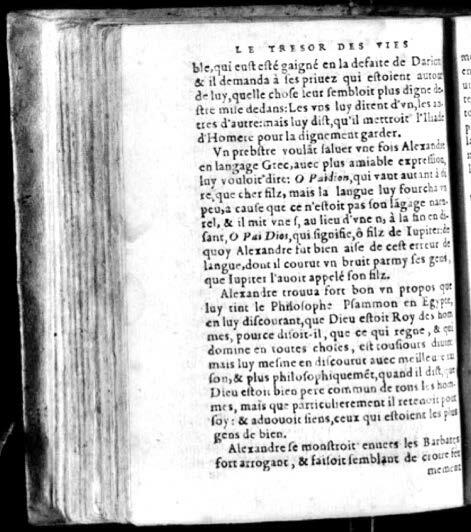 LE TRESOR DES VIES
ble, qui eust esté gaigné en la defaite de Darius
& il demanda à ses priuez qui estoient autour
de luy, quelle chose leur sembloit plus digne de
stre mise dedans: Les vns luy dirent d'vn, les au-
tres d'autre: mais luy dist, qu'il mettroit l'Iliade
d'Homere pour la dignement garder.
Vn prebstre voulāt saluer vne fois Alexandre
en langage Grec, auec plus amiable expression,
luy vouloit dire: O Paidion, qui vaut autant à di
re, que cher filz, mais la langue luy fourcha vn
peu, a cause que ce n'estoit pas son lāgage natu-
rel, & il mit vne s, au lieu d'vne n, à la fin en di-
sant, O Pai Dios, qui signifie, ô filz de Iupiter: de
quoy Alexandre fut bien aise de cest erreur de
langue, dont il courut vn bruit parmy ses gens,
que Iupiter l'auoit appelé son filz.
Alexandre trouua fort bon vn propos que
luy tint le Philosophe Psammon en Egypte,
en luy discourant, que Dieu estoit Roy des hom
mes, pource disoit-il, que ce qui regne, & qui
domine en toutes choses, est tousiours diuin:
mais luy mesme en discourut auec meilleur rai
son, & plus philosophiquemēt, quand il dist, que
Dieu estoit bien pere commun de tous les hom-
mes, mais que particulierement il retenoit pour
soy: & aduouoit siens, ceux qui estoient les plus
gens de bien.
Alexandre se monstroit enuers les Barbares
fort arrogant, & faisoit semblant de croire fer
mement